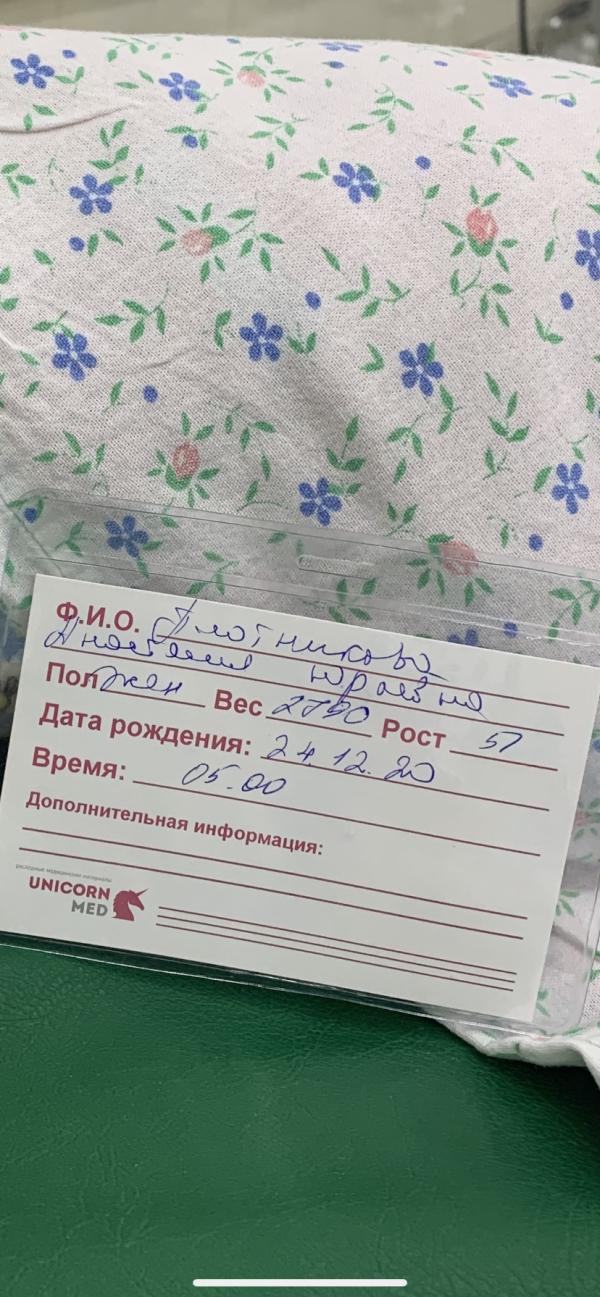 Ф.И.О. Плотникова
Анастасия Юрьевна
Пол жен Вес 2790 Рост 51
Дата рождения: 24.12.20
Время: 05.00
Дополнительная информация:
расходные медицинские материалы
UNICORN
MED